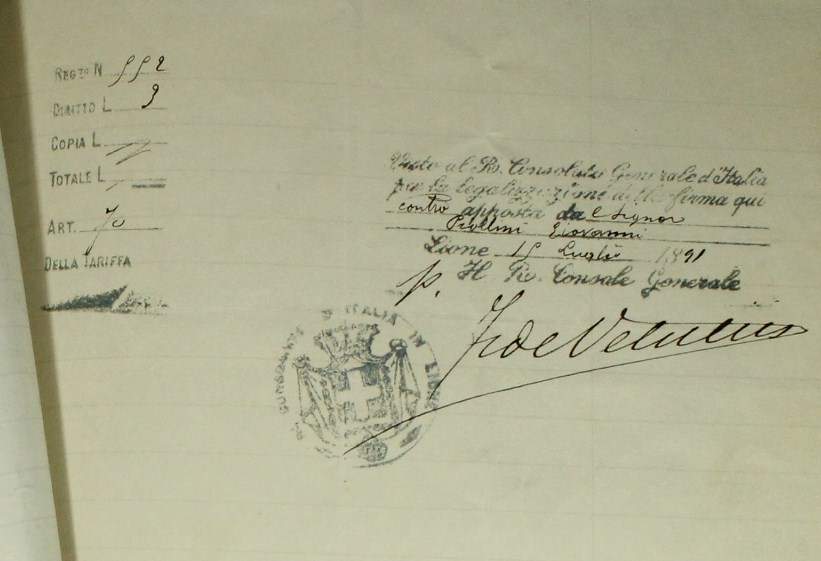 REG.º N 552
DIRITTO L 3
COPIA L
TOTALE L
ART. 70
DELLA TARIFFA
Visto al R. Consolato Generale d'Italia
per la legalizzazione della firma qui
contro apposta dal Signor
Giovanni
Lione 15 Luglio 1891
p. Il R. Console Generale
R. CONSOLATO D'ITALIA IN LIONE